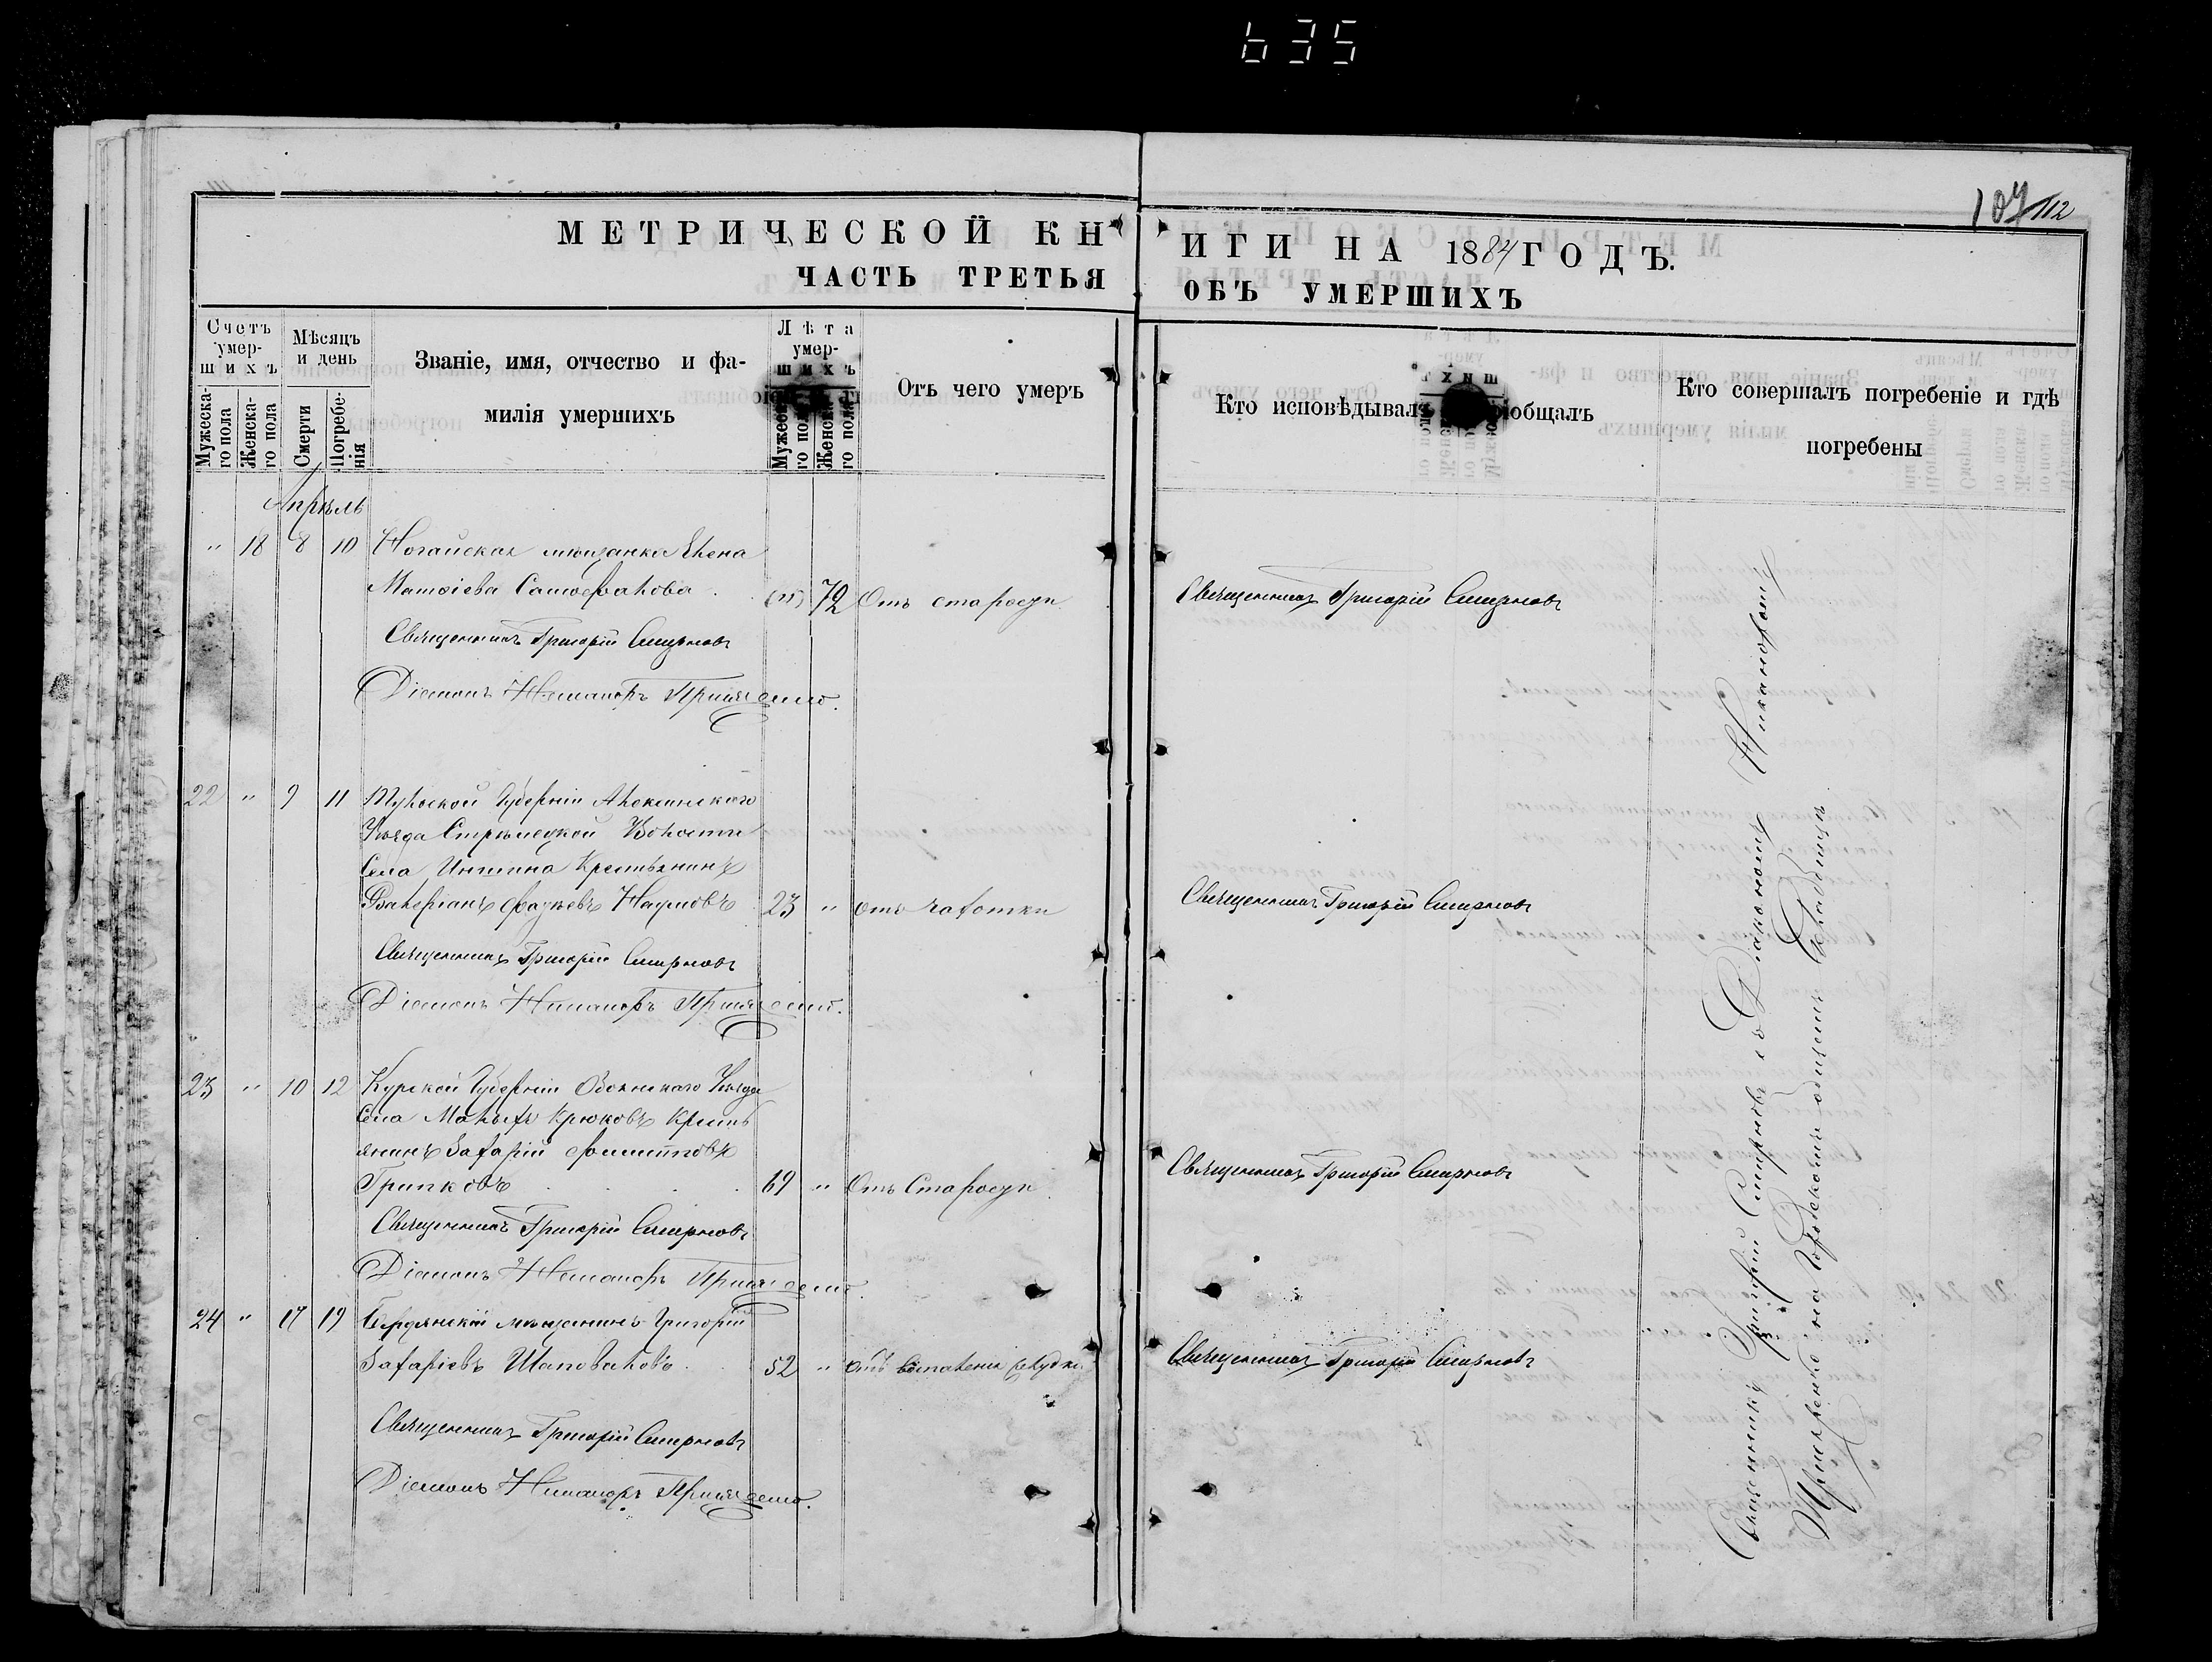 635
107 112
МЕТРИЧЕСКОЙ КНИГИ НА 1884 ГОДЪ.
ЧАСТЬ ТРЕТЬЯ ОБЪ УМЕРШИХЪ
Счетъ умер-
шихъ
Мужеска-
го пола
Женска-
го пола
Мѣсяцъ
и день
Смерти
Погребе-
нія
Званіе, имя, отчество и фа-
милія умершихъ
Лѣта
умер-
шихъ
Мужеска-
го пола
Женска-
го пола
Отъ чего умеръ
Кто исповѣдывалъ
общалъ
Кто совершалъ погребеніе и гдѣ
погребены
Апрѣль
" 18 8 10 Ногайская мѣщанка Елена
Матѳіева 72 Отъ старости Священникъ Григорій Смирновъ
Священникъ Григорій Смирновъ
Діаконъ Никаноръ
22 " 9 11 Тульской Губерніи Алексинскаго
Уѣзда Стрѣлецкой Волости
Села Крестьянинъ
Валеріанъ Наумовъ 23 " отъ чахотки Священникъ Григорій Смирновъ
Священникъ Григорій Смирновъ
Діаконъ Никаноръ
23 " 10 12 Курской Губерніи Обоянскаго Уѣзда
Села Малыхъ Крюковъ Кресть
янинъ Захарій Филипповъ
Грипковъ 69 " Отъ Старости Священникъ Григорій Смирновъ
Священникъ Григорій Смирновъ
Діаконъ Никаноръ
24 " 17 19 Бердянскій мѣщанинъ Григорій
Захаріевъ Шаповаловъ 52 " отъ воспаленія желудка Священникъ Григорій Смирновъ
Священникъ Григорій Смирновъ
Діаконъ Никаноръ
Священникъ Григорій Смирновъ съ Діакономъ Никаноромъ
на Городскомъ общемъ Кладбищѣ